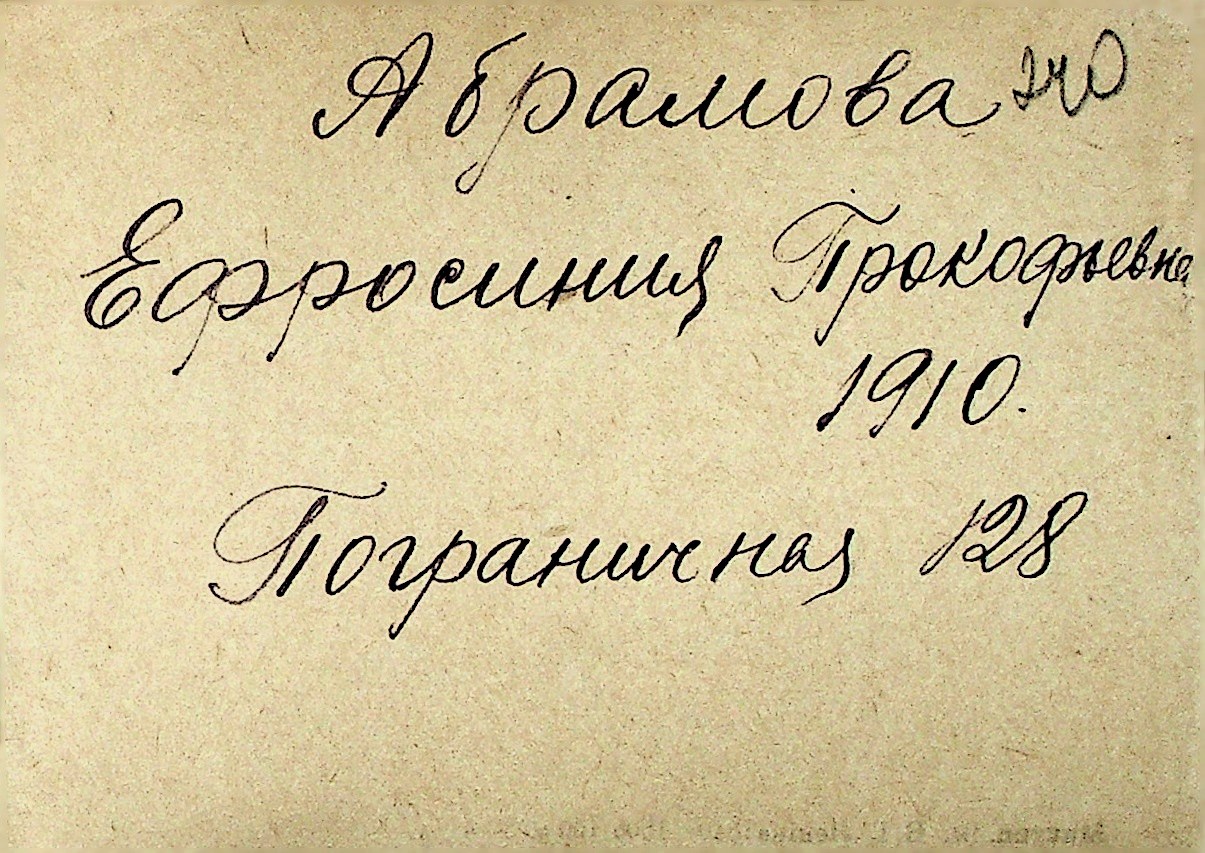 Абрамова 240
Ефросиния Прокофьевна
1910.
Пограничная 128